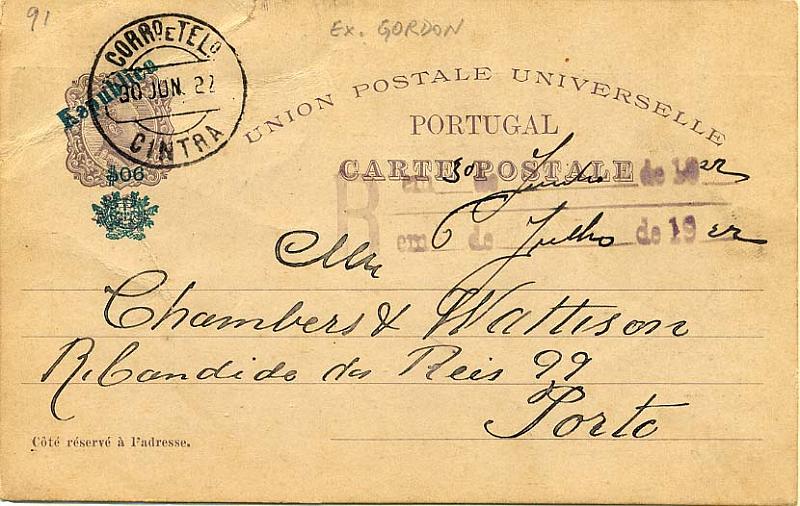 91
Ex. GORDON
CORRO. E TELO.
30 JUN. 22
CINTRA
Republica
$06
UNION POSTALE UNIVERSELLE
PORTUGAL
CARTE POSTALE
R em 30 de Junho de 19 22
em 6 de Julho de 19 22
Chambers & Wattison
R. Candido dos Reis 99
Porto
Côté réservé à l'adresse.